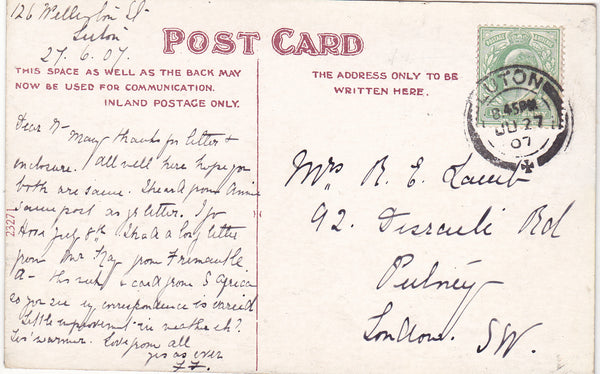 126 Wellington St
Luton
27.6.07.
POST CARD
THIS SPACE AS WELL AS THE BACK MAY
NOW BE USED FOR COMMUNICATION.
INLAND POSTAGE ONLY.
THE ADDRESS ONLY TO BE
WRITTEN HERE.
LUTON
8.45PM
JU 27
07
Many thanks for letter &
enclosure. All well here hope you
both are same. I heard from Annie
same post as yr letter. I go
July 8th. I had a long letter
from Mr Kay from Fremantle
this week & card from S Africa
so you see my correspondence is varied
Little improvement in weather eh?
warmer. Love from all
yrs as ever
23271
Mrs R. E. Lamb
92. Disraeli Rd
Putney
London. SW.